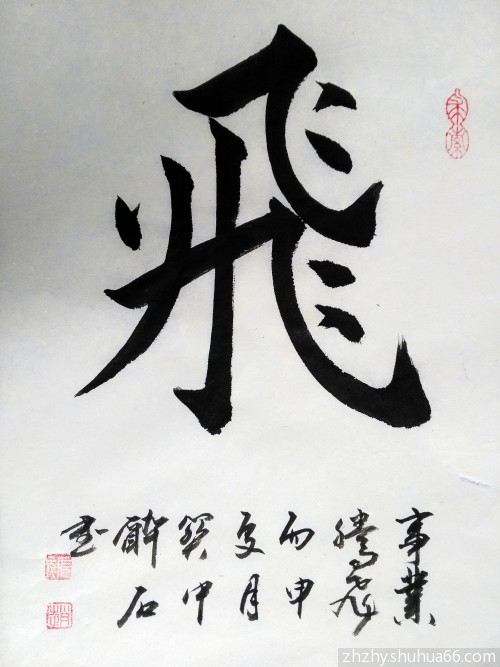 飛
事業
騰飛
丙申
夏月
中
酔石
書
zhzhy.shuhua66.com